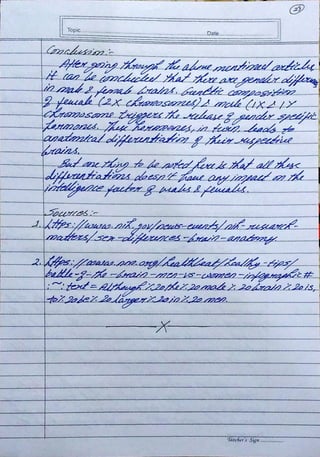 23
Topic
Date
Conclusion :-
After going through the above mentioned articles
it can be concluded that there are gender differences
in male & female brains. Genetic composition
of female (2X chromosomes) & male (1X & 1Y
chromosome triggers the release of gender specific
hormones. These hormones, in turn, leads to
anatomical differentiation of their respective
brains.
But one thing to be noted here is that all these
differentiations doesn't have any impact on the
intelligence factor of males & females.
Sources :-
1. https://www.nih.gov/news-events/nih-research-
matters/sex-differences-brain-anatomy.
2. https://www.nm.org/healthbeat/healthy-tips/
battle-of-the-brain-men-vs-women-infographic#
:~:text=Although%20the%20male%20brain%20is,
to%20be%20larger%20in%20men.
X
Teacher's Sign